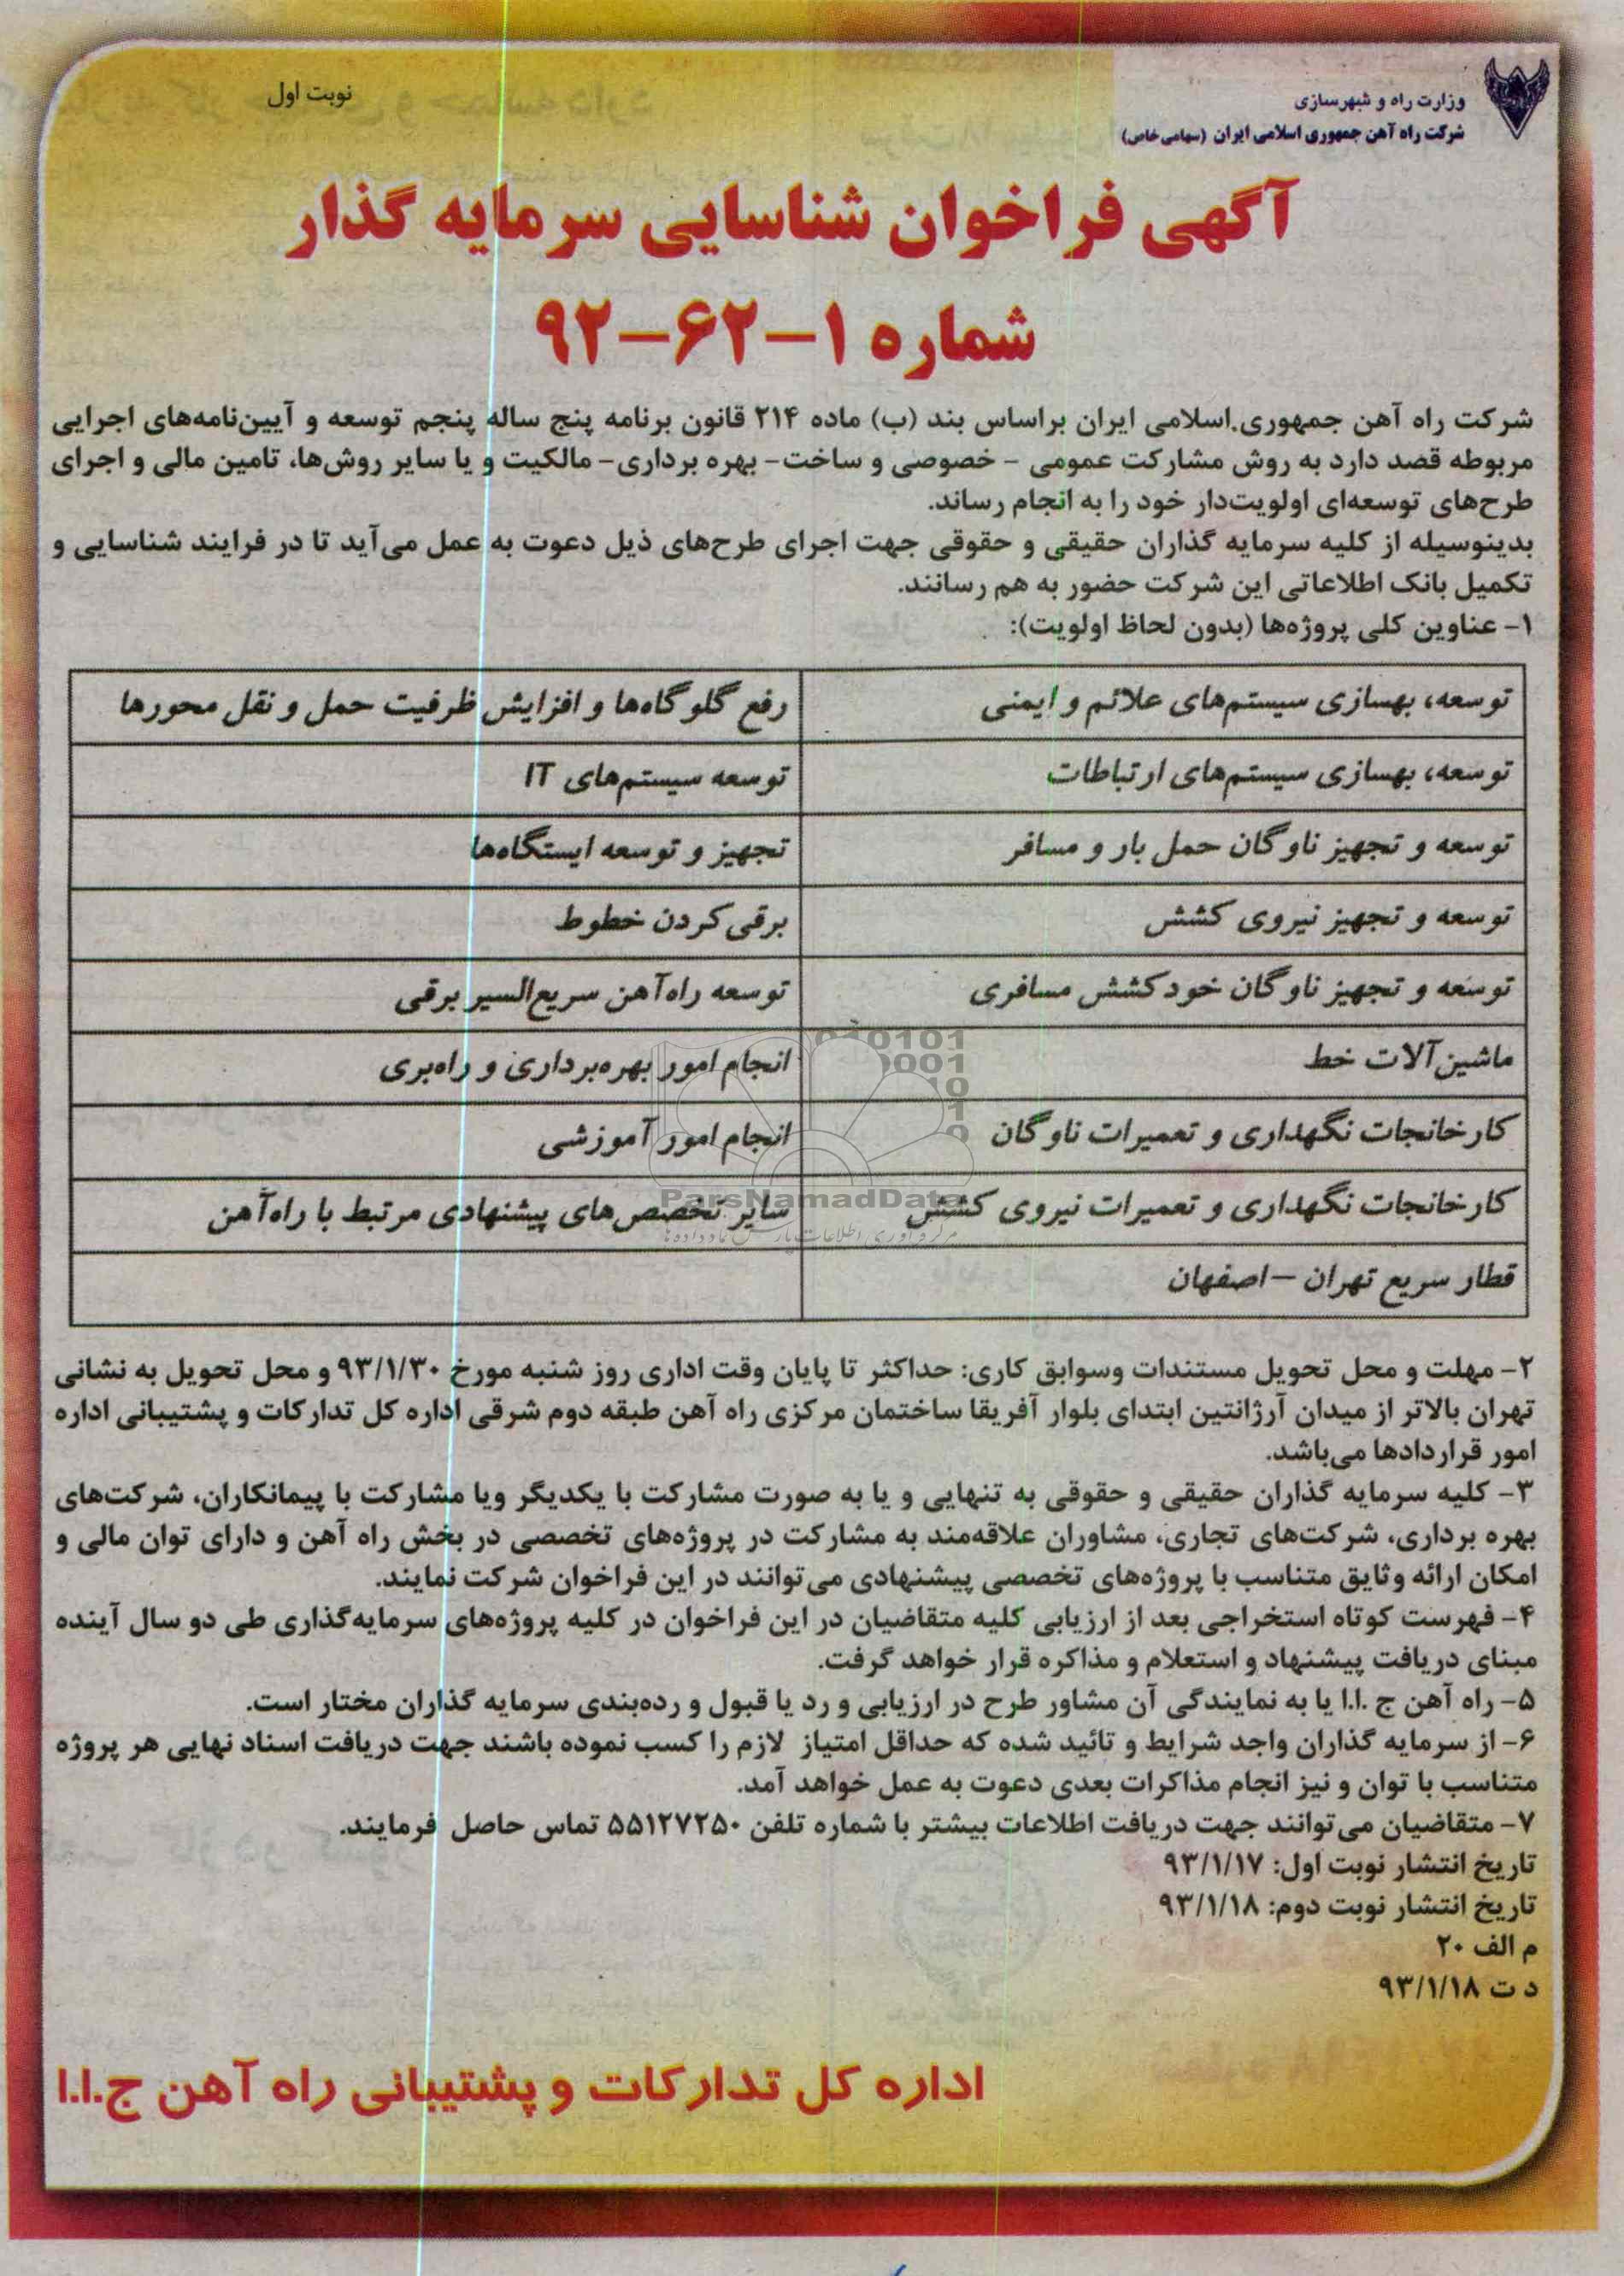 وزارت راه و شهرسازی
شرکت راه آهن جمهوری اسلامی ایران (سهامی خاص)
نوبت اول
آگهی فراخوان شناسایی سرمایه گذار
شماره ۱-۶۲-۹۲
شرکت راه آهن جمهوری اسلامی ایران براساس بند (ب) ماده ۲۱۴ قانون برنامه پنج ساله پنجم توسعه و آیین‌نامه‌های اجرایی
مربوطه قصد دارد به روش مشارکت عمومی - خصوصی و ساخت- بهره برداری- مالکیت و یا سایر روش‌ها، تامین مالی و اجرای
طرح‌های توسعه‌ای اولویت‌دار خود را به انجام رساند.
بدینوسیله از کلیه سرمایه گذاران حقیقی و حقوقی جهت اجرای طرح‌های ذیل دعوت به عمل می‌آید تا در فرایند شناسایی و
تکمیل بانک اطلاعاتی این شرکت حضور به هم رسانند.
۱- عناوین کلی پروژه‌ها (بدون لحاظ اولویت):
توسعه، بهسازی سیستم‌های علائم و ایمنی
رفع گلوگاه‌ها و افزایش ظرفیت حمل و نقل محورها
توسعه، بهسازی سیستم‌های ارتباطات
توسعه سیستم‌های IT
توسعه و تجهیز ناوگان حمل بار و مسافر
تجهیز و توسعه ایستگاه‌ها
توسعه و تجهیز نیروی کشش
برقی کردن خطوط
توسعه و تجهیز ناوگان خودکشش مسافری
توسعه راه‌آهن سریع‌السیر برقی
ماشین‌آلات خط
انجام امور بهره‌برداری و راه‌بری
کارخانجات نگهداری و تعمیرات ناوگان
انجام امور آموزشی
کارخانجات نگهداری و تعمیرات نیروی کشش
سایر تخصص‌های پیشنهادی مرتبط با راه‌آهن
قطار سریع تهران - اصفهان
ParsNamadData
۲- مهلت و محل تحویل مستندات وسوابق کاری: حداکثر تا پایان وقت اداری روز شنبه مورخ ۹۳/۱/۳۰ و محل تحویل به نشانی
تهران بالاتر از میدان آرژانتین ابتدای بلوار آفریقا ساختمان مرکزی راه آهن طبقه دوم شرقی اداره کل تدارکات و پشتیبانی اداره
امور قراردادها می‌باشد.
۳- کلیه سرمایه گذاران حقیقی و حقوقی به تنهایی و یا به صورت مشارکت با یکدیگر ویا مشارکت با پیمانکاران، شرکت‌های
بهره برداری، شرکت‌های تجاری، مشاوران علاقه‌مند به مشارکت در پروژه‌های تخصصی در بخش راه آهن و دارای توان مالی و
امکان ارائه وثایق متناسب با پروژه‌های تخصصی پیشنهادی می‌توانند در این فراخوان شرکت نمایند.
۴- فهرست کوتاه استخراجی بعد از ارزیابی کلیه متقاضیان در این فراخوان در کلیه پروژه‌های سرمایه‌گذاری طی دو سال آینده
مبنای دریافت پیشنهاد و استعلام و مذاکره قرار خواهد گرفت.
۵- راه آهن ج .ا.ا یا به نمایندگی آن مشاور طرح در ارزیابی و رد یا قبول و رده‌بندی سرمایه گذاران مختار است.
۶- از سرمایه گذاران واجد شرایط و تائید شده که حداقل امتیاز لازم را کسب نموده باشند جهت دریافت اسناد نهایی هر پروژه
متناسب با توان و نیز انجام مذاکرات بعدی دعوت به عمل خواهد آمد.
۷- متقاضیان می‌توانند جهت دریافت اطلاعات بیشتر با شماره تلفن ۵۵۱۲۷۲۵۰ تماس حاصل فرمایند.
تاریخ انتشار نوبت اول: ۹۳/۱/۱۷
تاریخ انتشار نوبت دوم: ۹۳/۱/۱۸
م الف ۲۰
د ت ۹۳/۱/۱۸
اداره کل تدارکات و پشتیبانی راه آهن ج.ا.ا